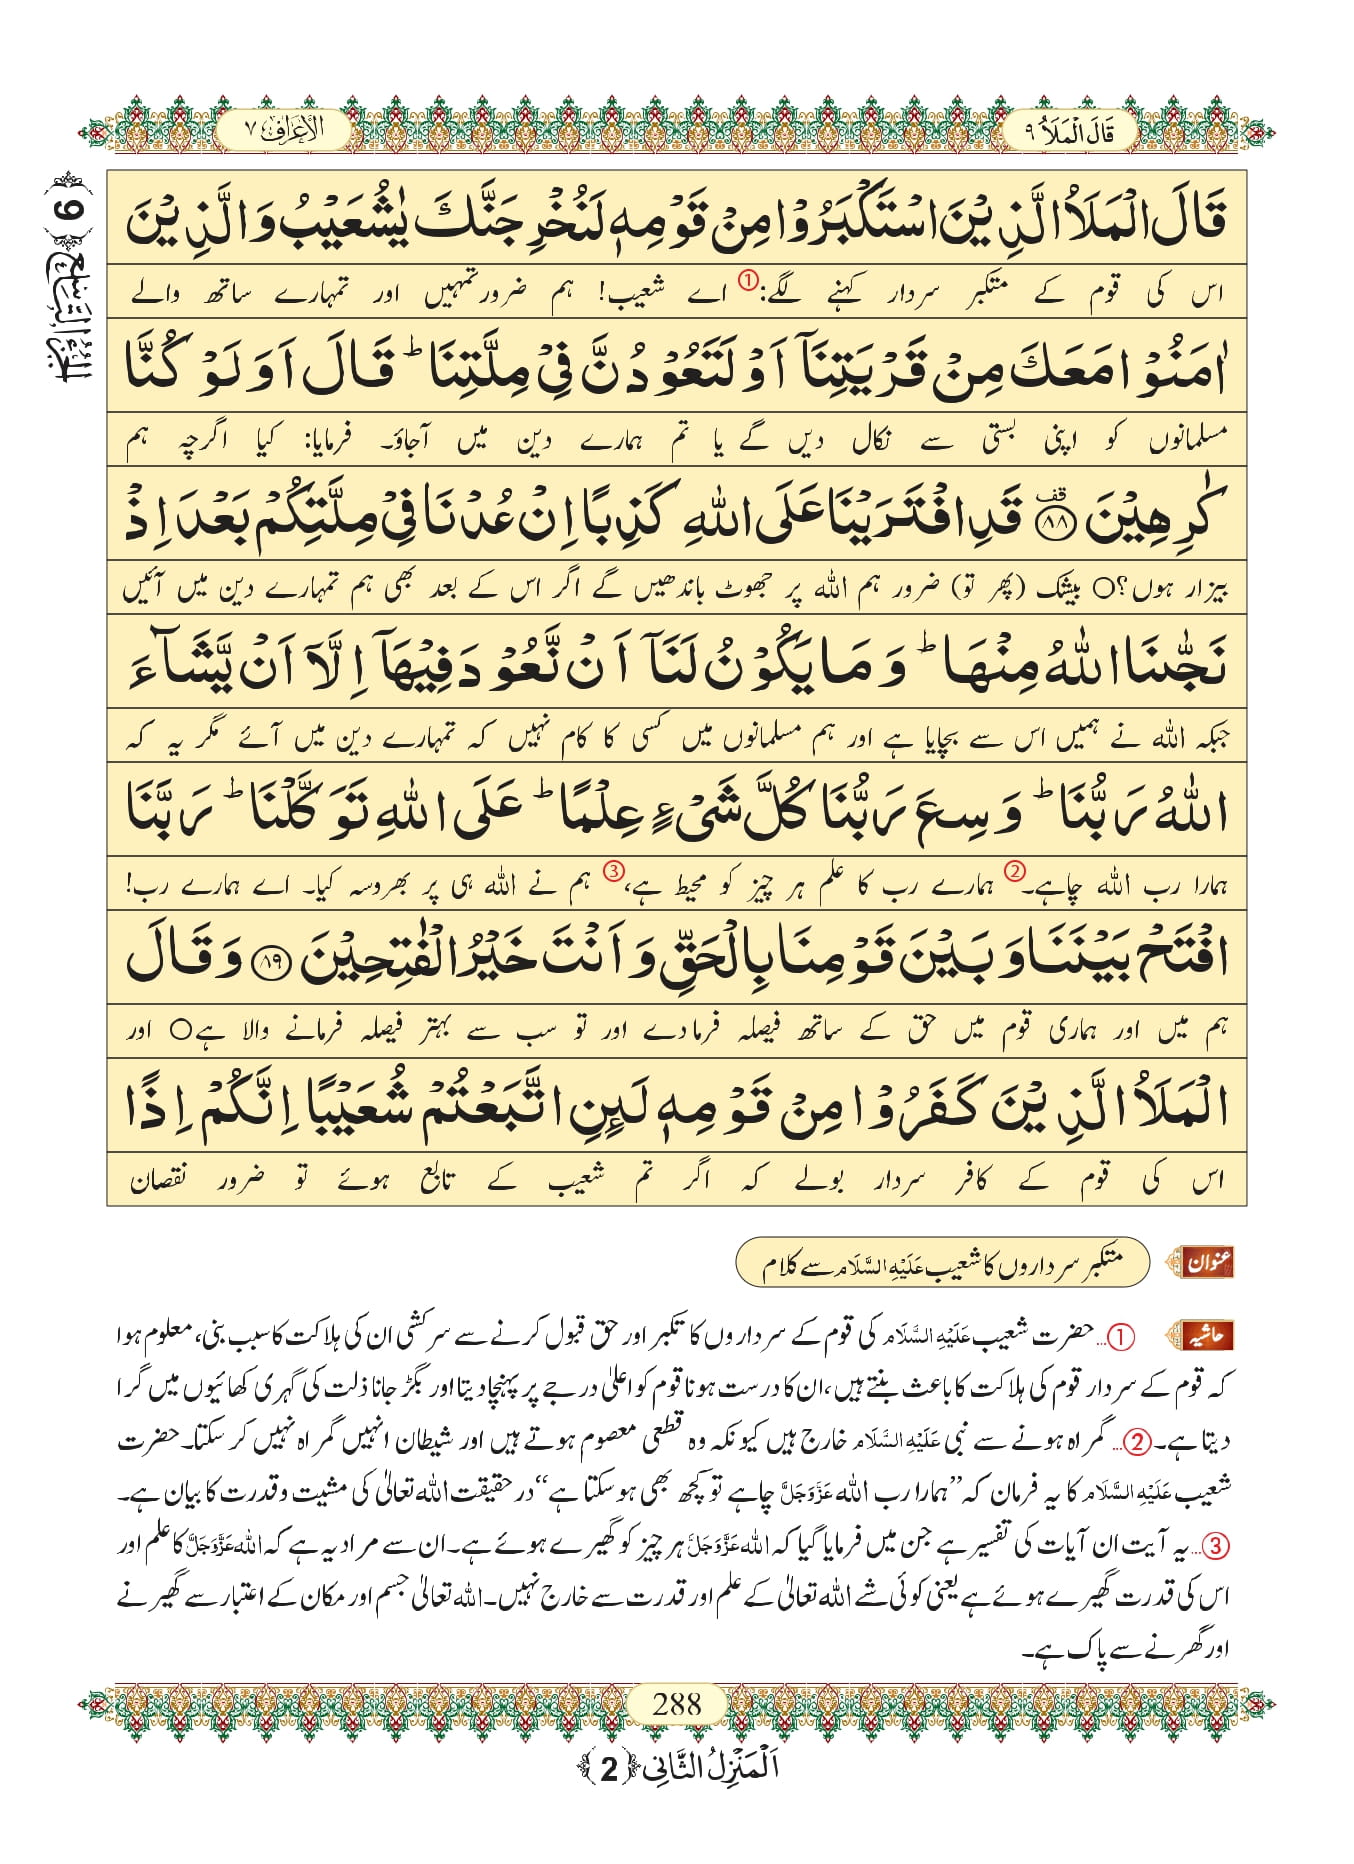 قَالَ الْمَلَاُ ٩
الأعراف ٧
اَلْجُزْءُ التَّاسِعُ ﴿9﴾
قَالَ الْمَلَاُ الَّذِیْنَ اسْتَكْبَرُوْا مِنْ قَوْمِهٖ لَنُخْرِجَنَّكَ یٰشُعَیْبُ وَ الَّذِیْنَ
اس کی قوم کے متکبر سردار کہنے لگے:① اے شعیب! ہم ضرور تمہیں اور تمہارے ساتھ والے
اٰمَنُوْا مَعَكَ مِنْ قَرْیَتِنَاۤ اَوْ لَتَعُوْدُنَّ فِیْ مِلَّتِنَاؕ قَالَ اَوَ لَوْ كُنَّا
مسلمانوں کو اپنی بستی سے نکال دیں گے یا تم ہمارے دین میں آجاؤ۔ فرمایا: کیا اگرچہ ہم
كٰرِهِیْنَ۫ ﴿٨٨﴾ قَدِ افْتَرَیْنَا عَلَى اللّٰهِ كَذِبًا اِنْ عُدْنَا فِیْ مِلَّتِكُمْ بَعْدَ اِذْ
بیزار ہوں؟○ بیشک (پھر تو) ضرور ہم اللہ پر جھوٹ باندھیں گے اگر اس کے بعد بھی ہم تمہارے دین میں آئیں
نَجّٰىنَا اللّٰهُ مِنْهَاؕ وَ مَا یَكُوْنُ لَنَاۤ اَنْ نَّعُوْدَ فِیْهَاۤ اِلَّاۤ اَنْ یَّشَآءَ
جبکہ اللہ نے ہمیں اس سے بچایا ہے اور ہم مسلمانوں میں کسی کا کام نہیں کہ تمہارے دین میں آئے مگر یہ کہ
اللّٰهُ رَبُّنَاؕ وَسِعَ رَبُّنَا كُلَّ شَیْءٍ عِلْمًاؕ عَلَى اللّٰهِ تَوَكَّلْنَاؕ رَبَّنَا
ہمارا رب اللہ چاہے۔② ہمارے رب کا علم ہر چیز کو محیط ہے،③ ہم نے اللہ ہی پر بھروسہ کیا۔ اے ہمارے رب!
افْتَحْ بَیْنَنَا وَ بَیْنَ قَوْمِنَا بِالْحَقِّ وَ اَنْتَ خَیْرُ الْفٰتِحِیْنَ ﴿٨٩﴾ وَ قَالَ
ہم میں اور ہماری قوم میں حق کے ساتھ فیصلہ فرمادے اور تو سب سے بہتر فیصلہ فرمانے والا ہے○ اور
الْمَلَاُ الَّذِیْنَ كَفَرُوْا مِنْ قَوْمِهٖ لَىِٕنِ اتَّبَعْتُمْ شُعَیْبًا اِنَّكُمْ اِذًا
اس کی قوم کے کافر سردار بولے کہ اگر تم شعیب کے تابع ہوئے تو ضرور نقصان
عنوان متکبر سرداروں کا شعیب عَلَیْہِ السَّلَام سے کلام
حاشیہ ①...حضرت شعیب عَلَیْہِ السَّلَام کی قوم کے سرداروں کا تکبر اور حق قبول کرنے سے سرکشی ان کی ہلاکت کا سبب بنی، معلوم ہوا
کہ قوم کے سردار قوم کی ہلاکت کا باعث بنتے ہیں، ان کا درست ہونا قوم کو اعلیٰ درجے پر پہنچا دیتا اور بگڑ جانا ذلت کی گہری کھائیوں میں گرا
دیتا ہے۔②... گمراہ ہونے سے نبی عَلَیْہِ السَّلَام خارج ہیں کیونکہ وہ قطعی معصوم ہوتے ہیں اور شیطان انہیں گمراہ نہیں کر سکتا۔ حضرت
شعیب عَلَیْہِ السَّلَام کا یہ فرمان کہ ’’ہمارا رب اللہ عَزَّوَجَلَّ چاہے تو کچھ بھی ہو سکتا ہے‘‘ در حقیقت اللہ تعالیٰ کی مشیت و قدرت کا بیان ہے۔
③...یہ آیت ان آیات کی تفسیر ہے جن میں فرمایا گیا کہ اللہ عَزَّوَجَلَّ ہر چیز کو گھیرے ہوئے ہے۔ ان سے مراد یہ ہے کہ اللہ عَزَّوَجَلَّ کا علم اور
اس کی قدرت گھیرے ہوئے ہے یعنی کوئی شے اللہ تعالیٰ کے علم اور قدرت سے خارج نہیں۔ اللہ تعالیٰ جسم اور مکان کے اعتبار سے گھیرنے
اور گھرنے سے پاک ہے۔
288
اَلْمَنْزِلُ الثَّانِی ﴿2﴾